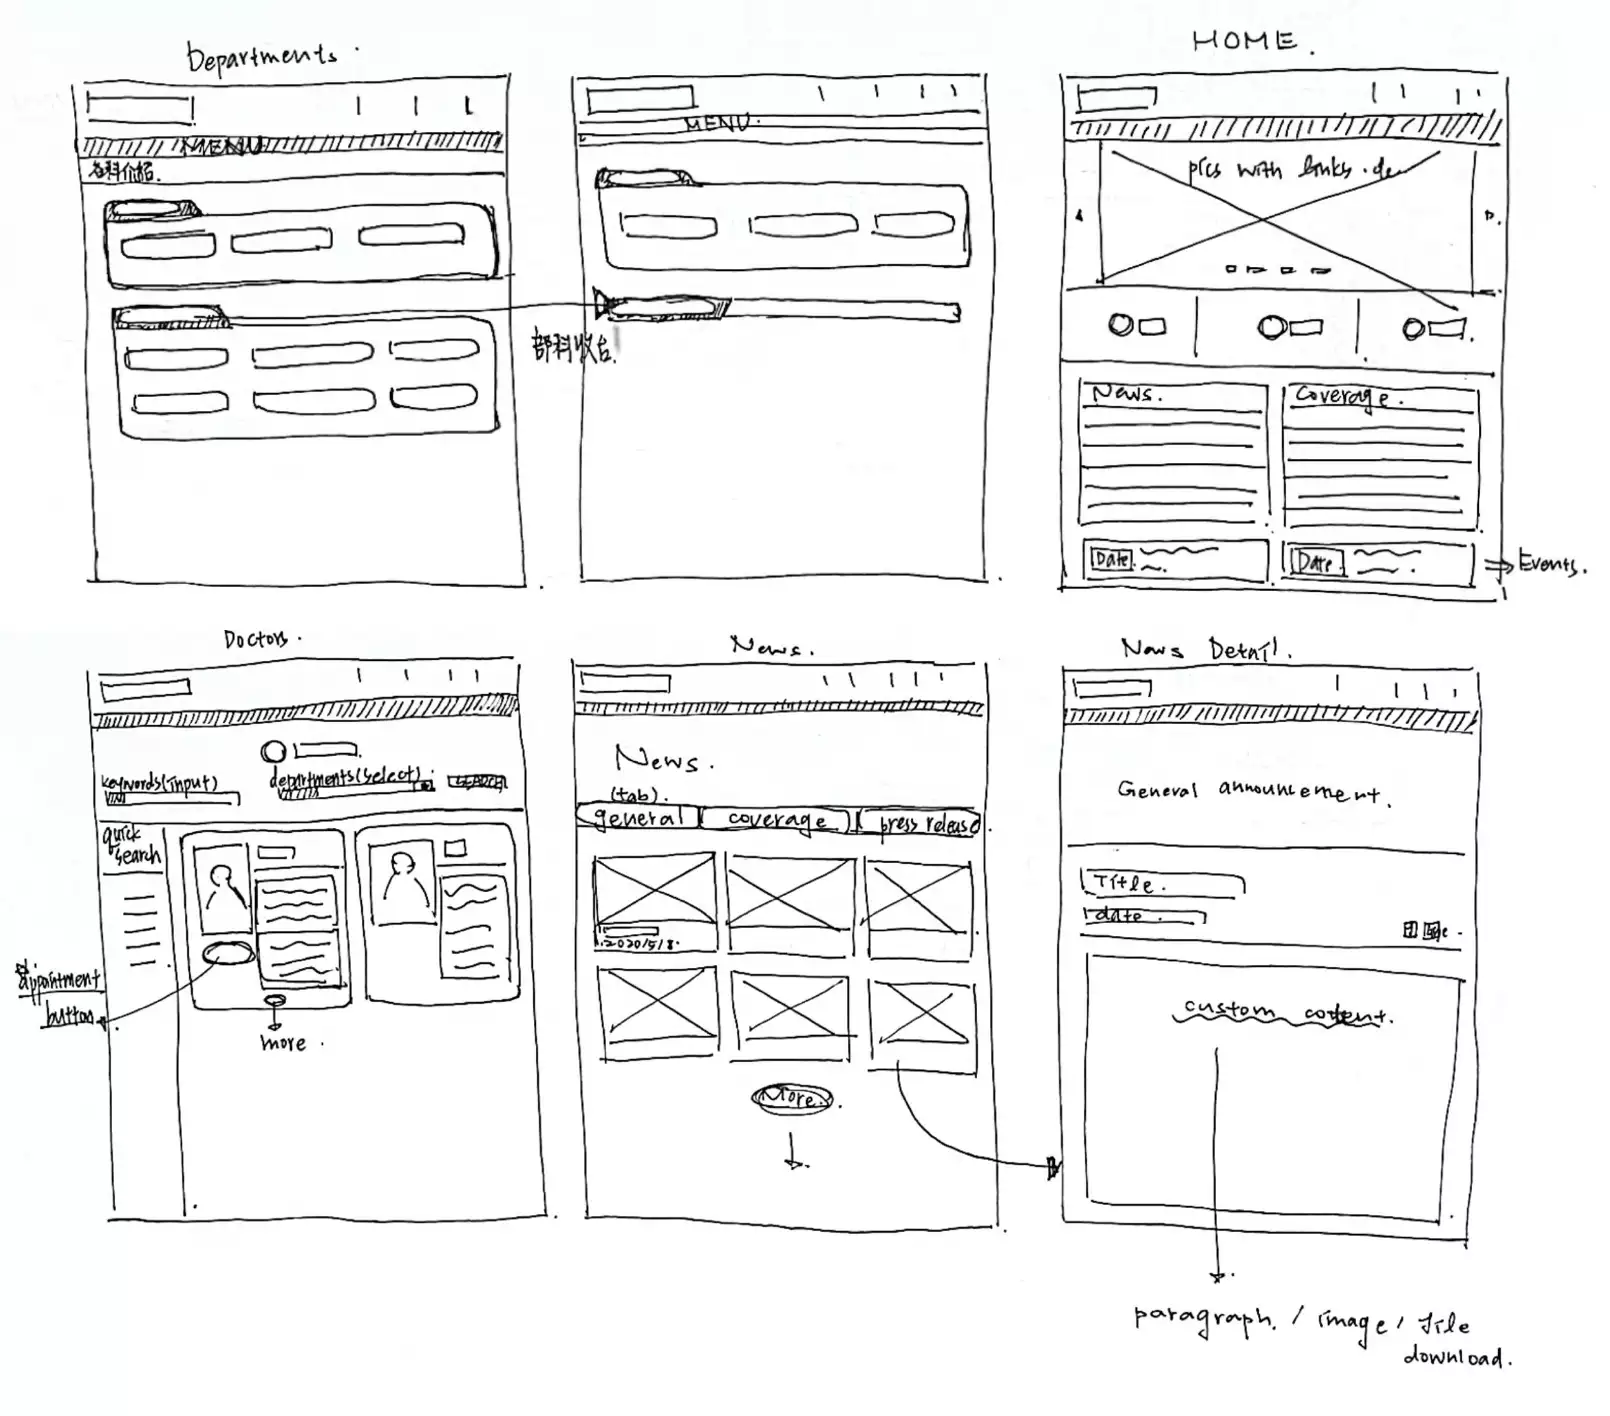 Departments.
MENU
各科介绍.
MENU.
部科收合.
HOME.
pics with links.
News.
Coverage.
Date
Date
Events.
Doctors.
keywords(input)
departments(select).
SEARCH
quick
search
appointment
button
more.
News.
News.
(tab).
general
coverage
press release
2020/5/8.
More.
News Detail.
General announcement.
Title.
date.
custom content.
paragraph. / image / file
download.